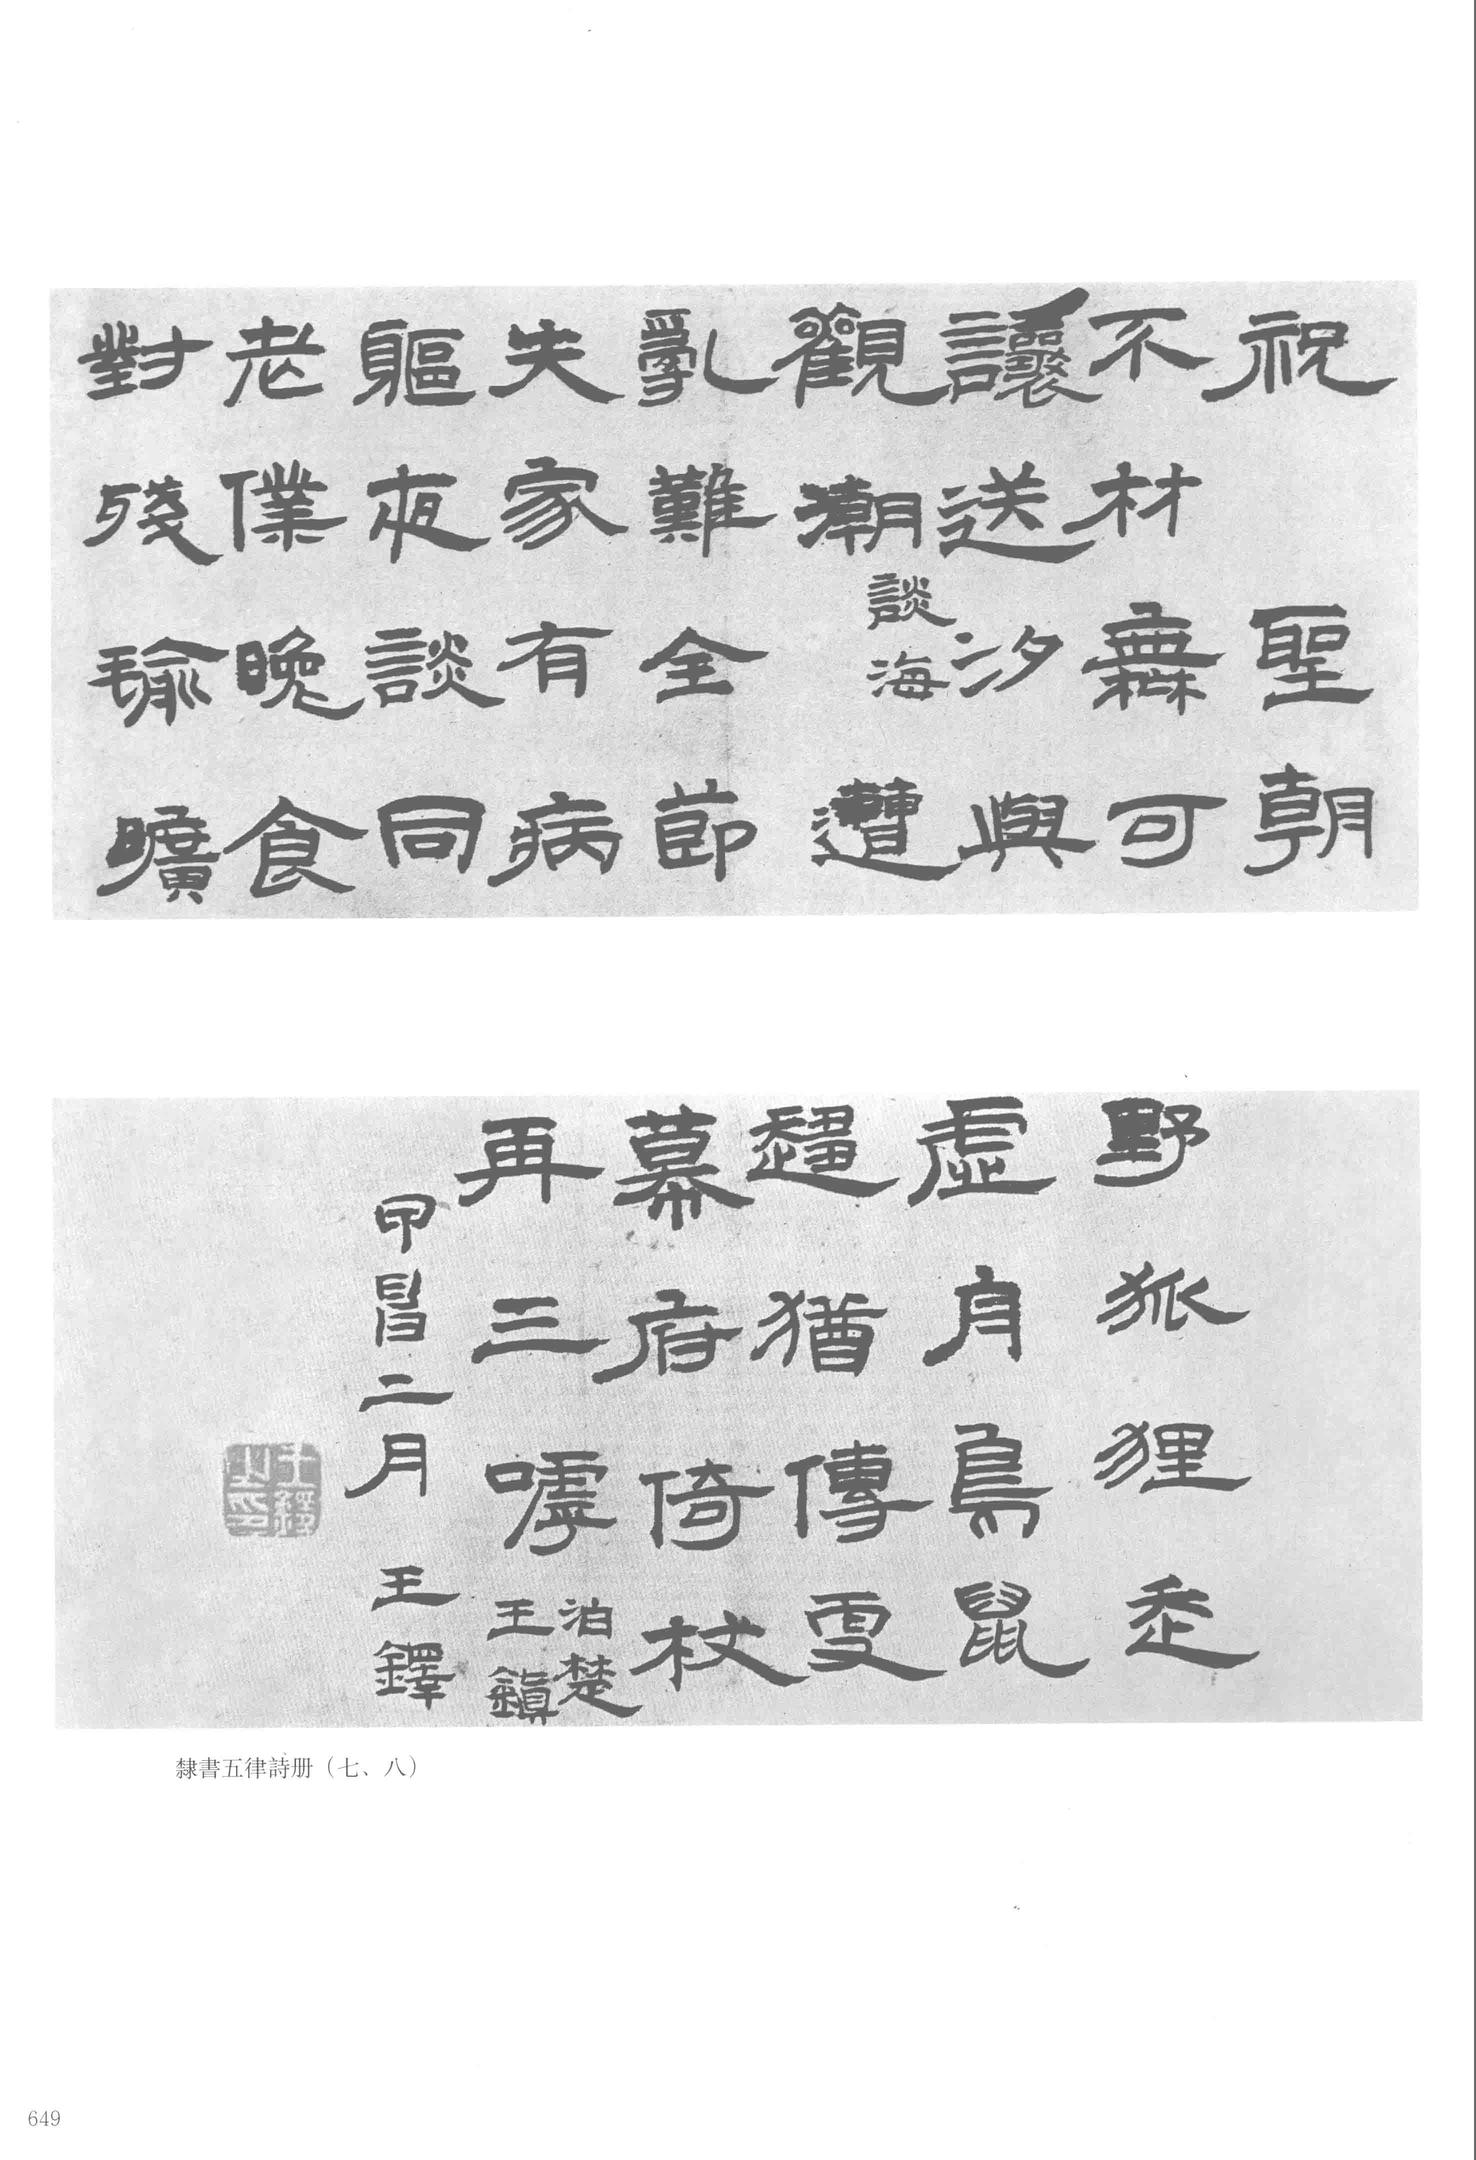 祝聖朝
不材無可
讓送汐與
觀潮談海遭
亂難全節
失家有病
軀夜談同
老僕晚食
對殘瑜曠
野狐狸走
虛舟鳥鼠
趨猶傳更
幕府倚杖
再三嘑泊楚王鎮
甲申二月王鐸
王鐸之印
隸書五律詩册（七、八）
649